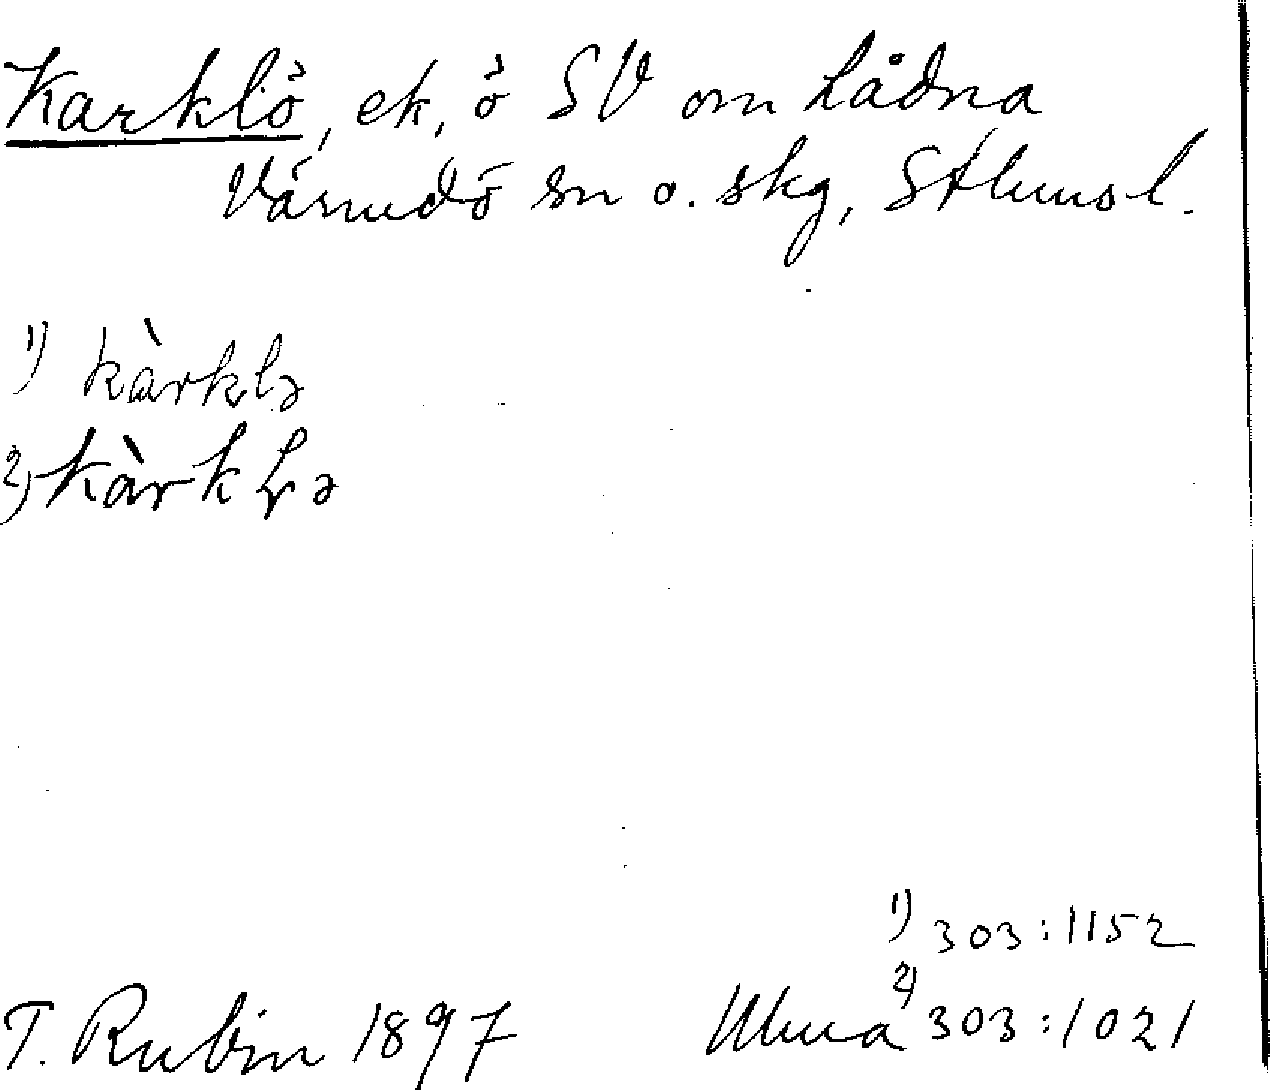 Karklö, ek, ö SV om Lådna
Värmdö sn o. skg, Sthms l.
1) kàrklə
2) kàrkḷə
1) 303:1152
2) 303:1021
T. Rubin 1897